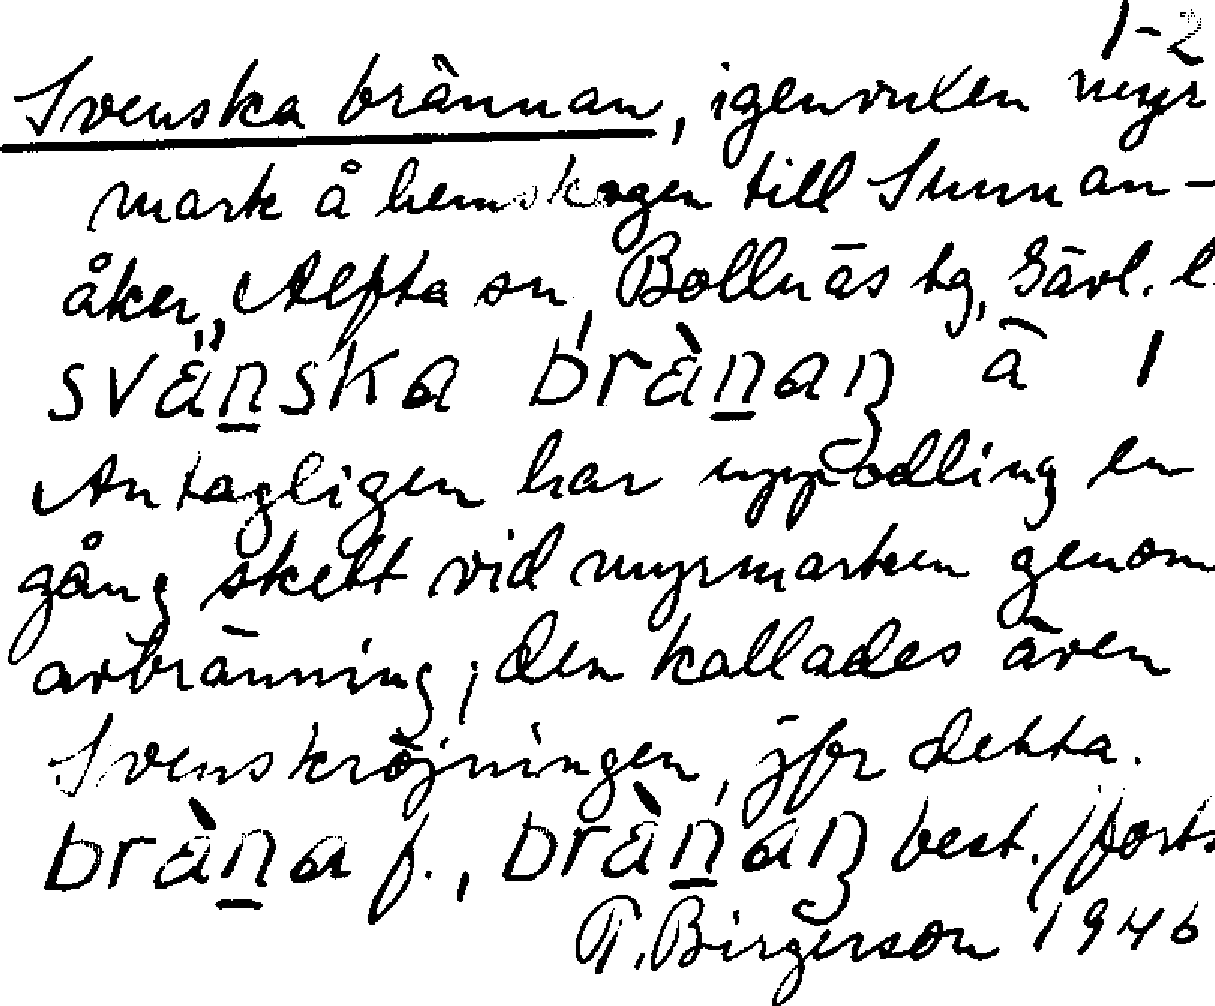 1-2
Svenska brännan, igenvuxen myr
mark å hemskogen till Sunnan-
åker, Alfta sn, Bollnäs tg, Gävl. l.
svänska brànan å 1
Antagligen har uppodling en
gång skett vid myrmarken genom
avbränning; den kallades även
Svenskröjningen, jfr detta.
bràna f., brànan best. /forts
T. Birgerson 1946